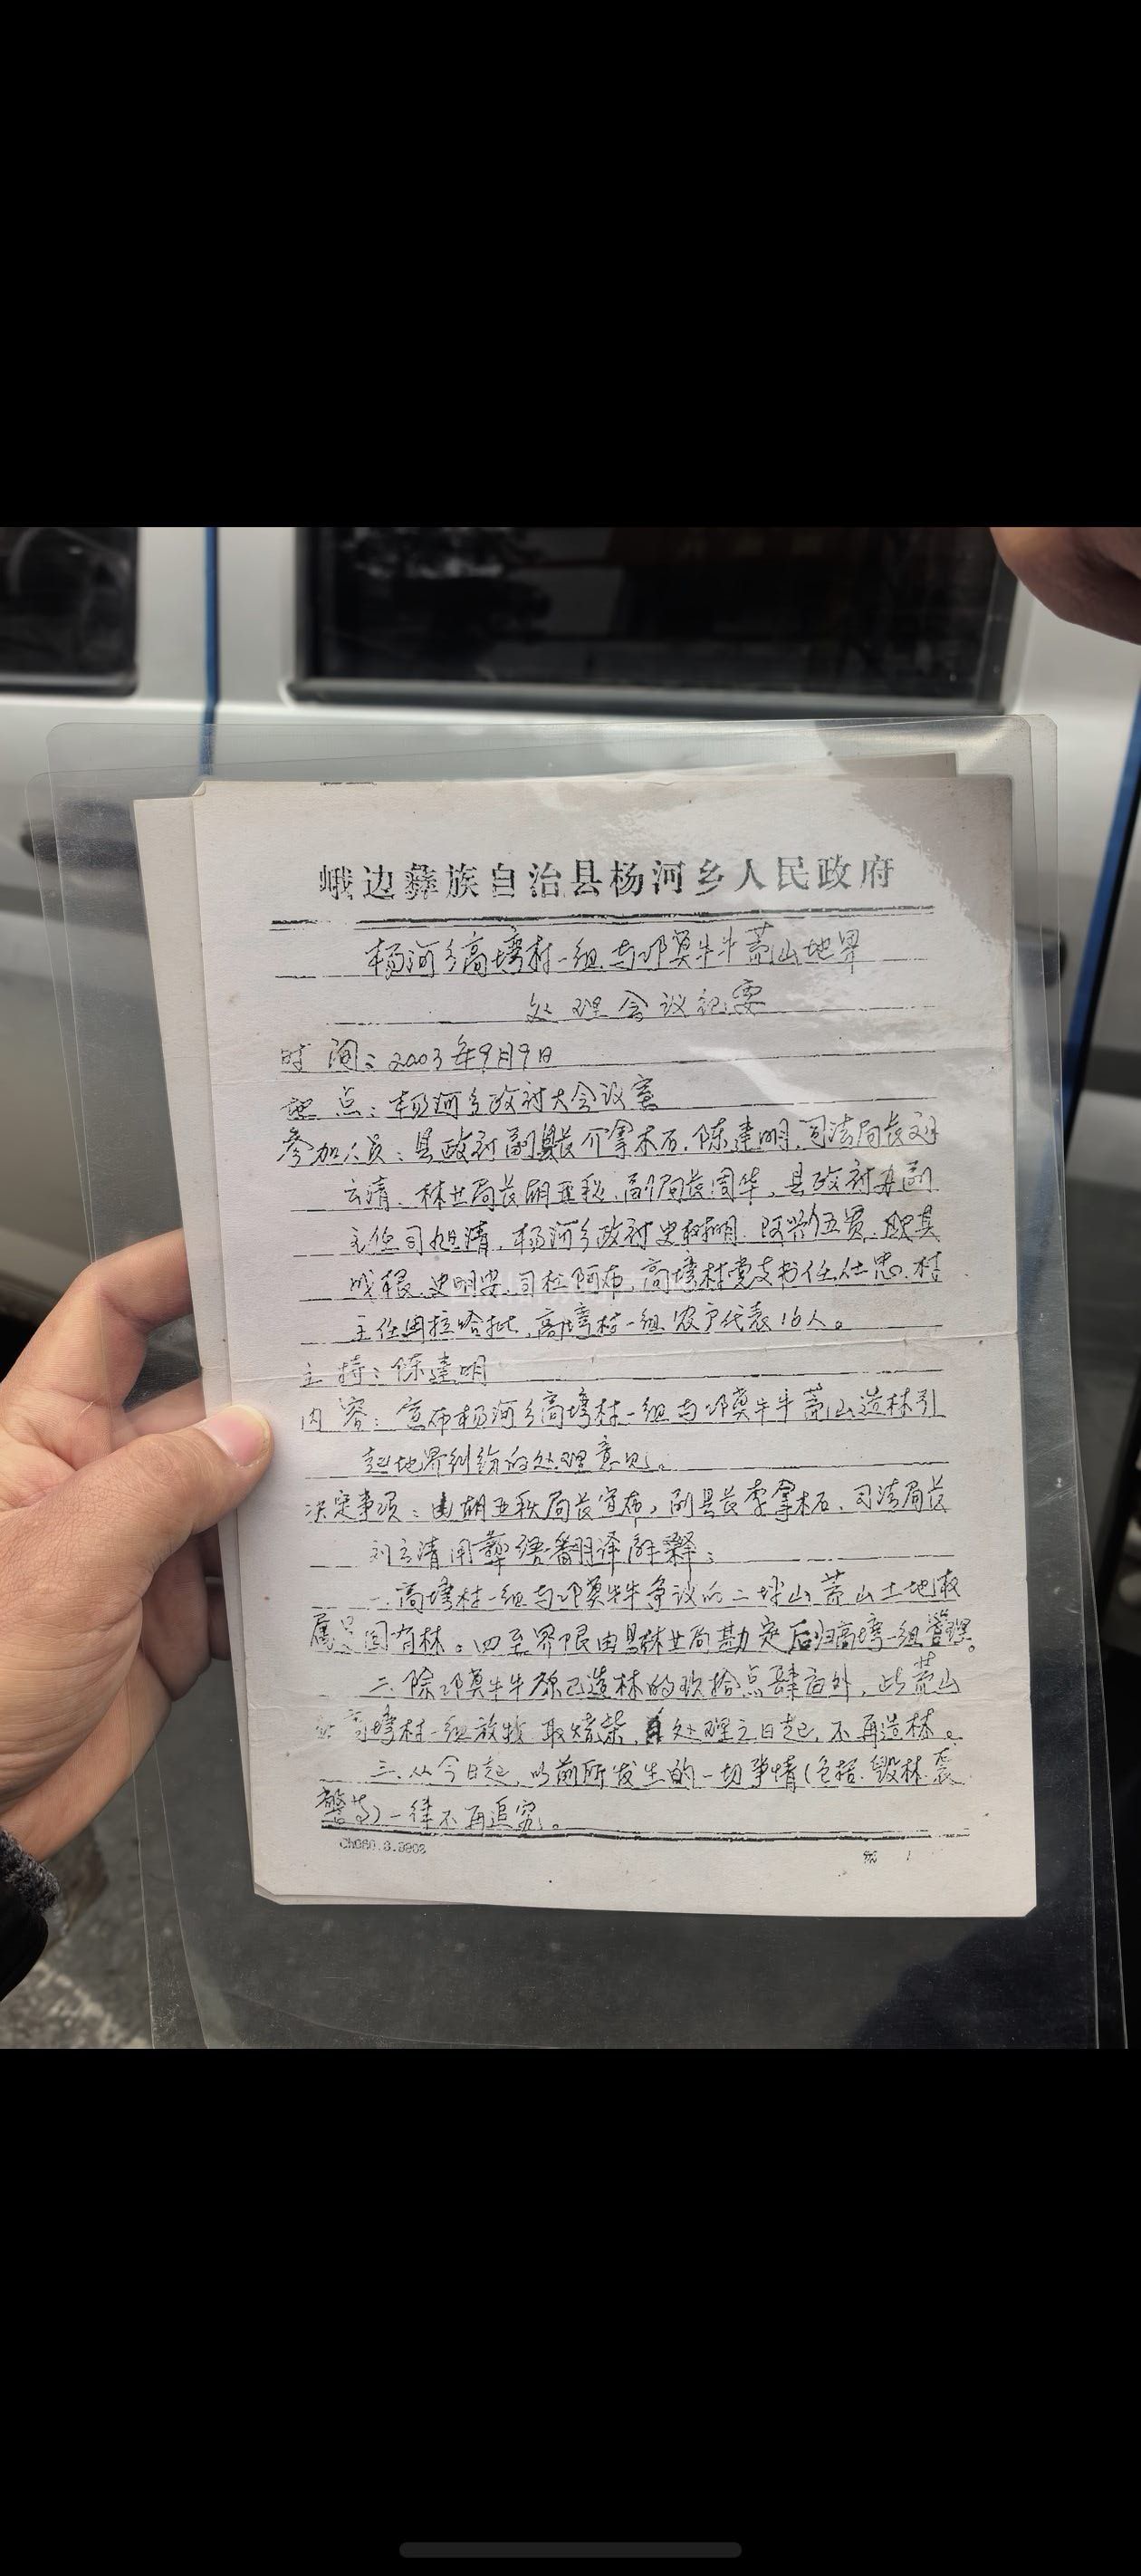 峨边彝族自治县杨河乡人民政府
杨河乡高塆村一组与邛莫牛牛荒山地界
处理会议纪要
时 间：2003年9月9日
地 点：杨河乡政府大会议室
参加人员：县政府副县长 拿木石、陈建明、司法局长刘
云清、林业局长胡亚秋、副局长周华、县政府办副
主任司旭清、杨河乡政府史树明、阿
史明安、司杜阿布、高塆村党支书任仕忠、村
主任 拉哈批、高塆村一组农户代表16人。
主 持：陈建明
内 容：宣布杨河乡高塆村一组与邛莫牛牛荒山造林引
起地界纠纷的处理意见。
决定事项：由胡亚秋局长宣布，副县长李拿木石、司法局长
刘云清用彝语翻译解释：
一、高塆村一组与邛莫牛牛争议的二坪山荒山土地权
属是国有林。四至界限由县林业局勘定后归高塆一组管理。
二、除邛莫牛牛原已造林的玖拾点肆亩外，此荒山
高塆村一组放牧、取烧柴，自处理之日起，不再造林。
三、从今日起，以前所发生的一切事情(包括毁林、袭
警等)一律不再追究。